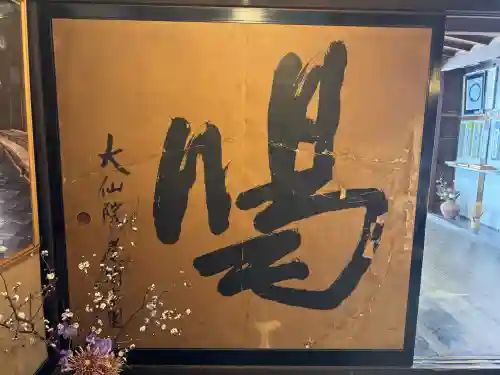 喝
大仙院